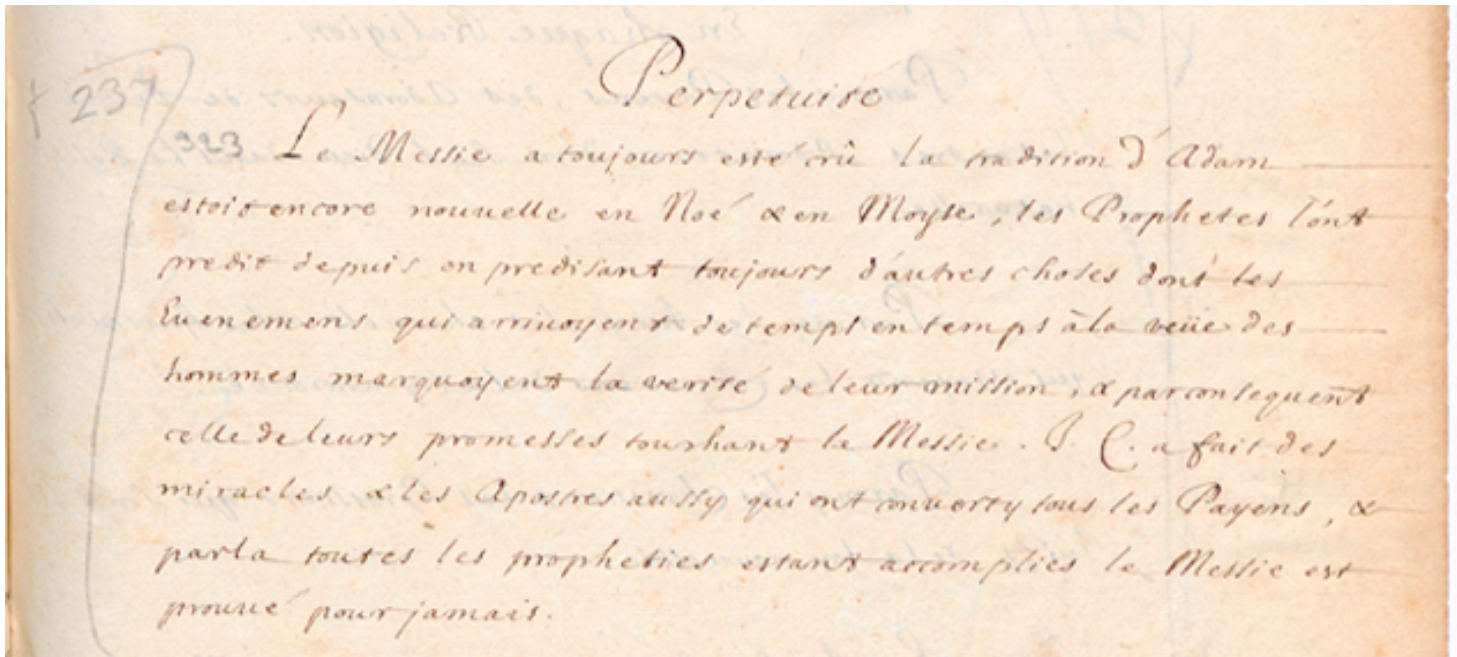 Perpetuité
† 237
323 Le Messie a toujours esté crû la tradition d'Adam
estoit encore nouuelle en Noé & en Moyse, les Prophetes l'ont
predit depuis en predisant toujours d'autres choses dont les
Euenemens qui arriuoyent de temps en temps à la veüe des
hommes marquoyent la verité de leur mission, & par consequent
celle de leurs promesses touchant le Messie. J. C. a fait des
miracles & les Apostres aussy qui ont conuerty tous les Payens, &
par la toutes les propheties estant accomplies le Messie est
prouué pour jamais.